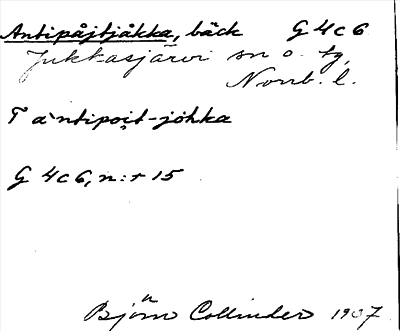 Antipåjtjåkka, bäck G 4c6
Jukkasjärvi sn o. tg,
Norrb. l.
T àntipoi̭t-jȯhka
G 4c6, n:r 15
Björn Collinder 1937